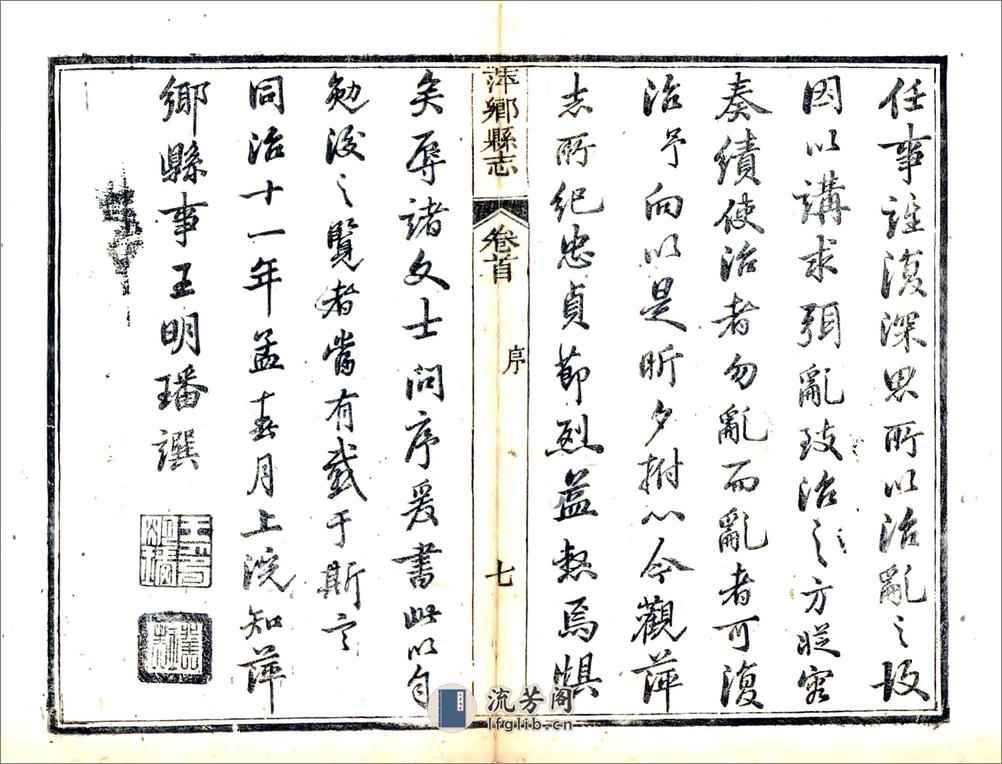 任事誰復深思所以治亂之故
因以講求弭亂致治之方從容
奏績使治者勿亂而亂者可復
治予向以是昕夕拊心今觀萍
志所紀忠貞節烈益焉懼
萍鄉縣志
卷首
序
七
矣辱諸文士問序爰書此以自
勉後之覽者當有感于斯言
同治十一年孟春月上浣知萍
鄉縣事王明璠譔
流芳阁
lfglib.cn